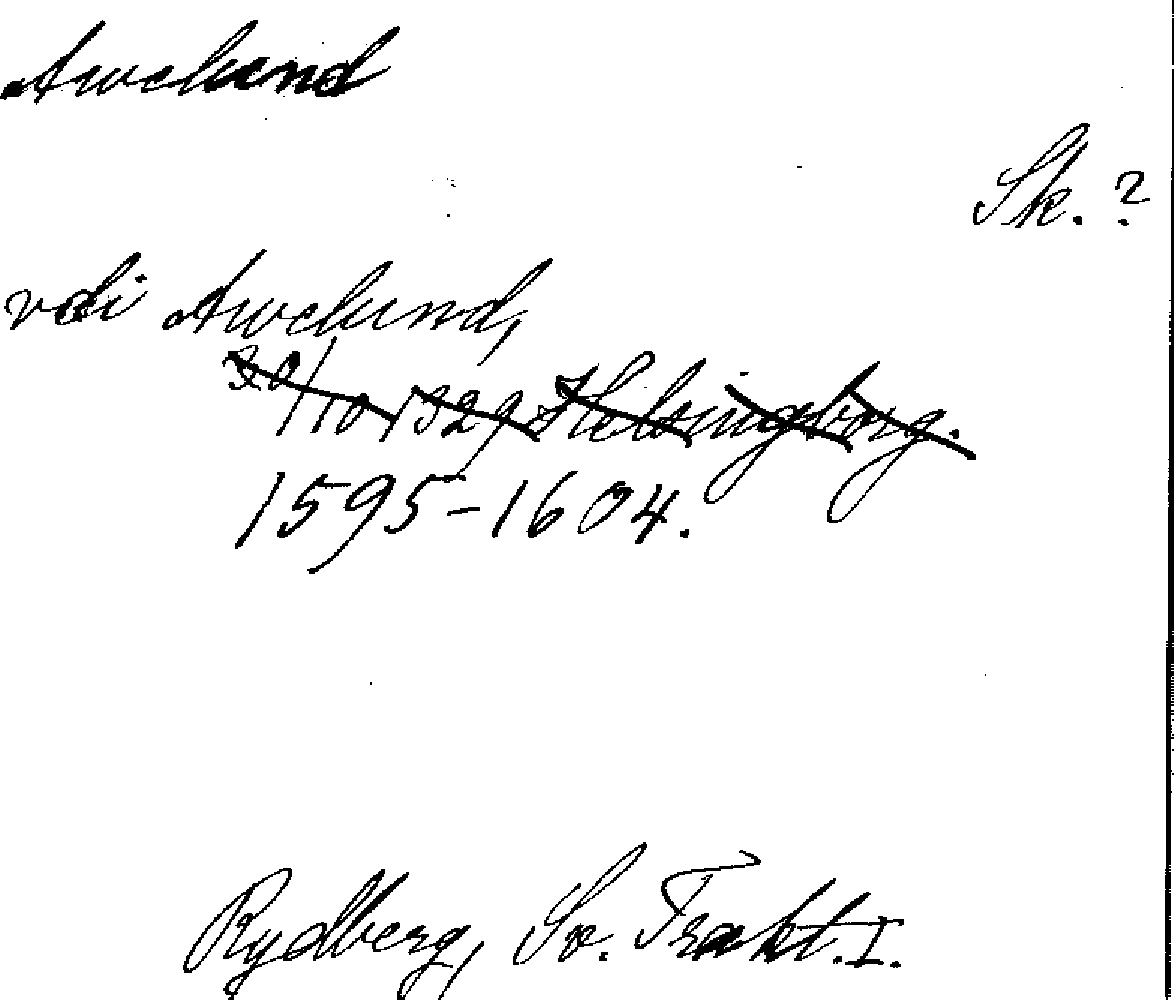 Awelund
Sk. ?
vdi Awelund,
30/10 1329 Helsingborg.
1595-1604.
Rydberg, Sv. Trakt. I.